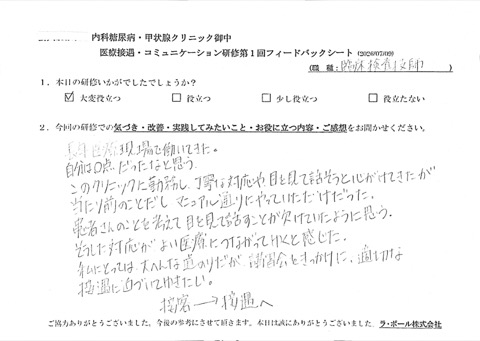 内科糖尿病・甲状腺クリニック御中
医療接遇・コミュニケーション研修第1回フィードバックシート (2026/07/09)
(職 種: 臨床検査技師)
1. 本日の研修いかがでしたでしょうか?
☑ 大変役立つ □ 役立つ □ 少し役立つ □ 役立たない
2. 今回の研修での気づき・改善・実践してみたいこと・お役に立つ内容・ご感想をお聞かせください。
現場で働いてきた。
自分は0点だったなと思う。
このクリニックに勤務し、丁寧な対応や目を見て話そうと心がけてきたが
当たり前のことだし マニュアル通りにやっていただけだった。
患者さんのことを考えて目を見て話すことが欠けていたように思う。
そうした対応がよい医療につながっていくと感じた。
私にとっては大へんな道のりだが、講習会をきっかけに、適切な
接遇に近づいてゆきたい。
接客 → 接遇へ
ご協力ありがとうございました。今後の参考にさせて頂きます。本日は誠にありがとうございました。ラ・ポール株式会社